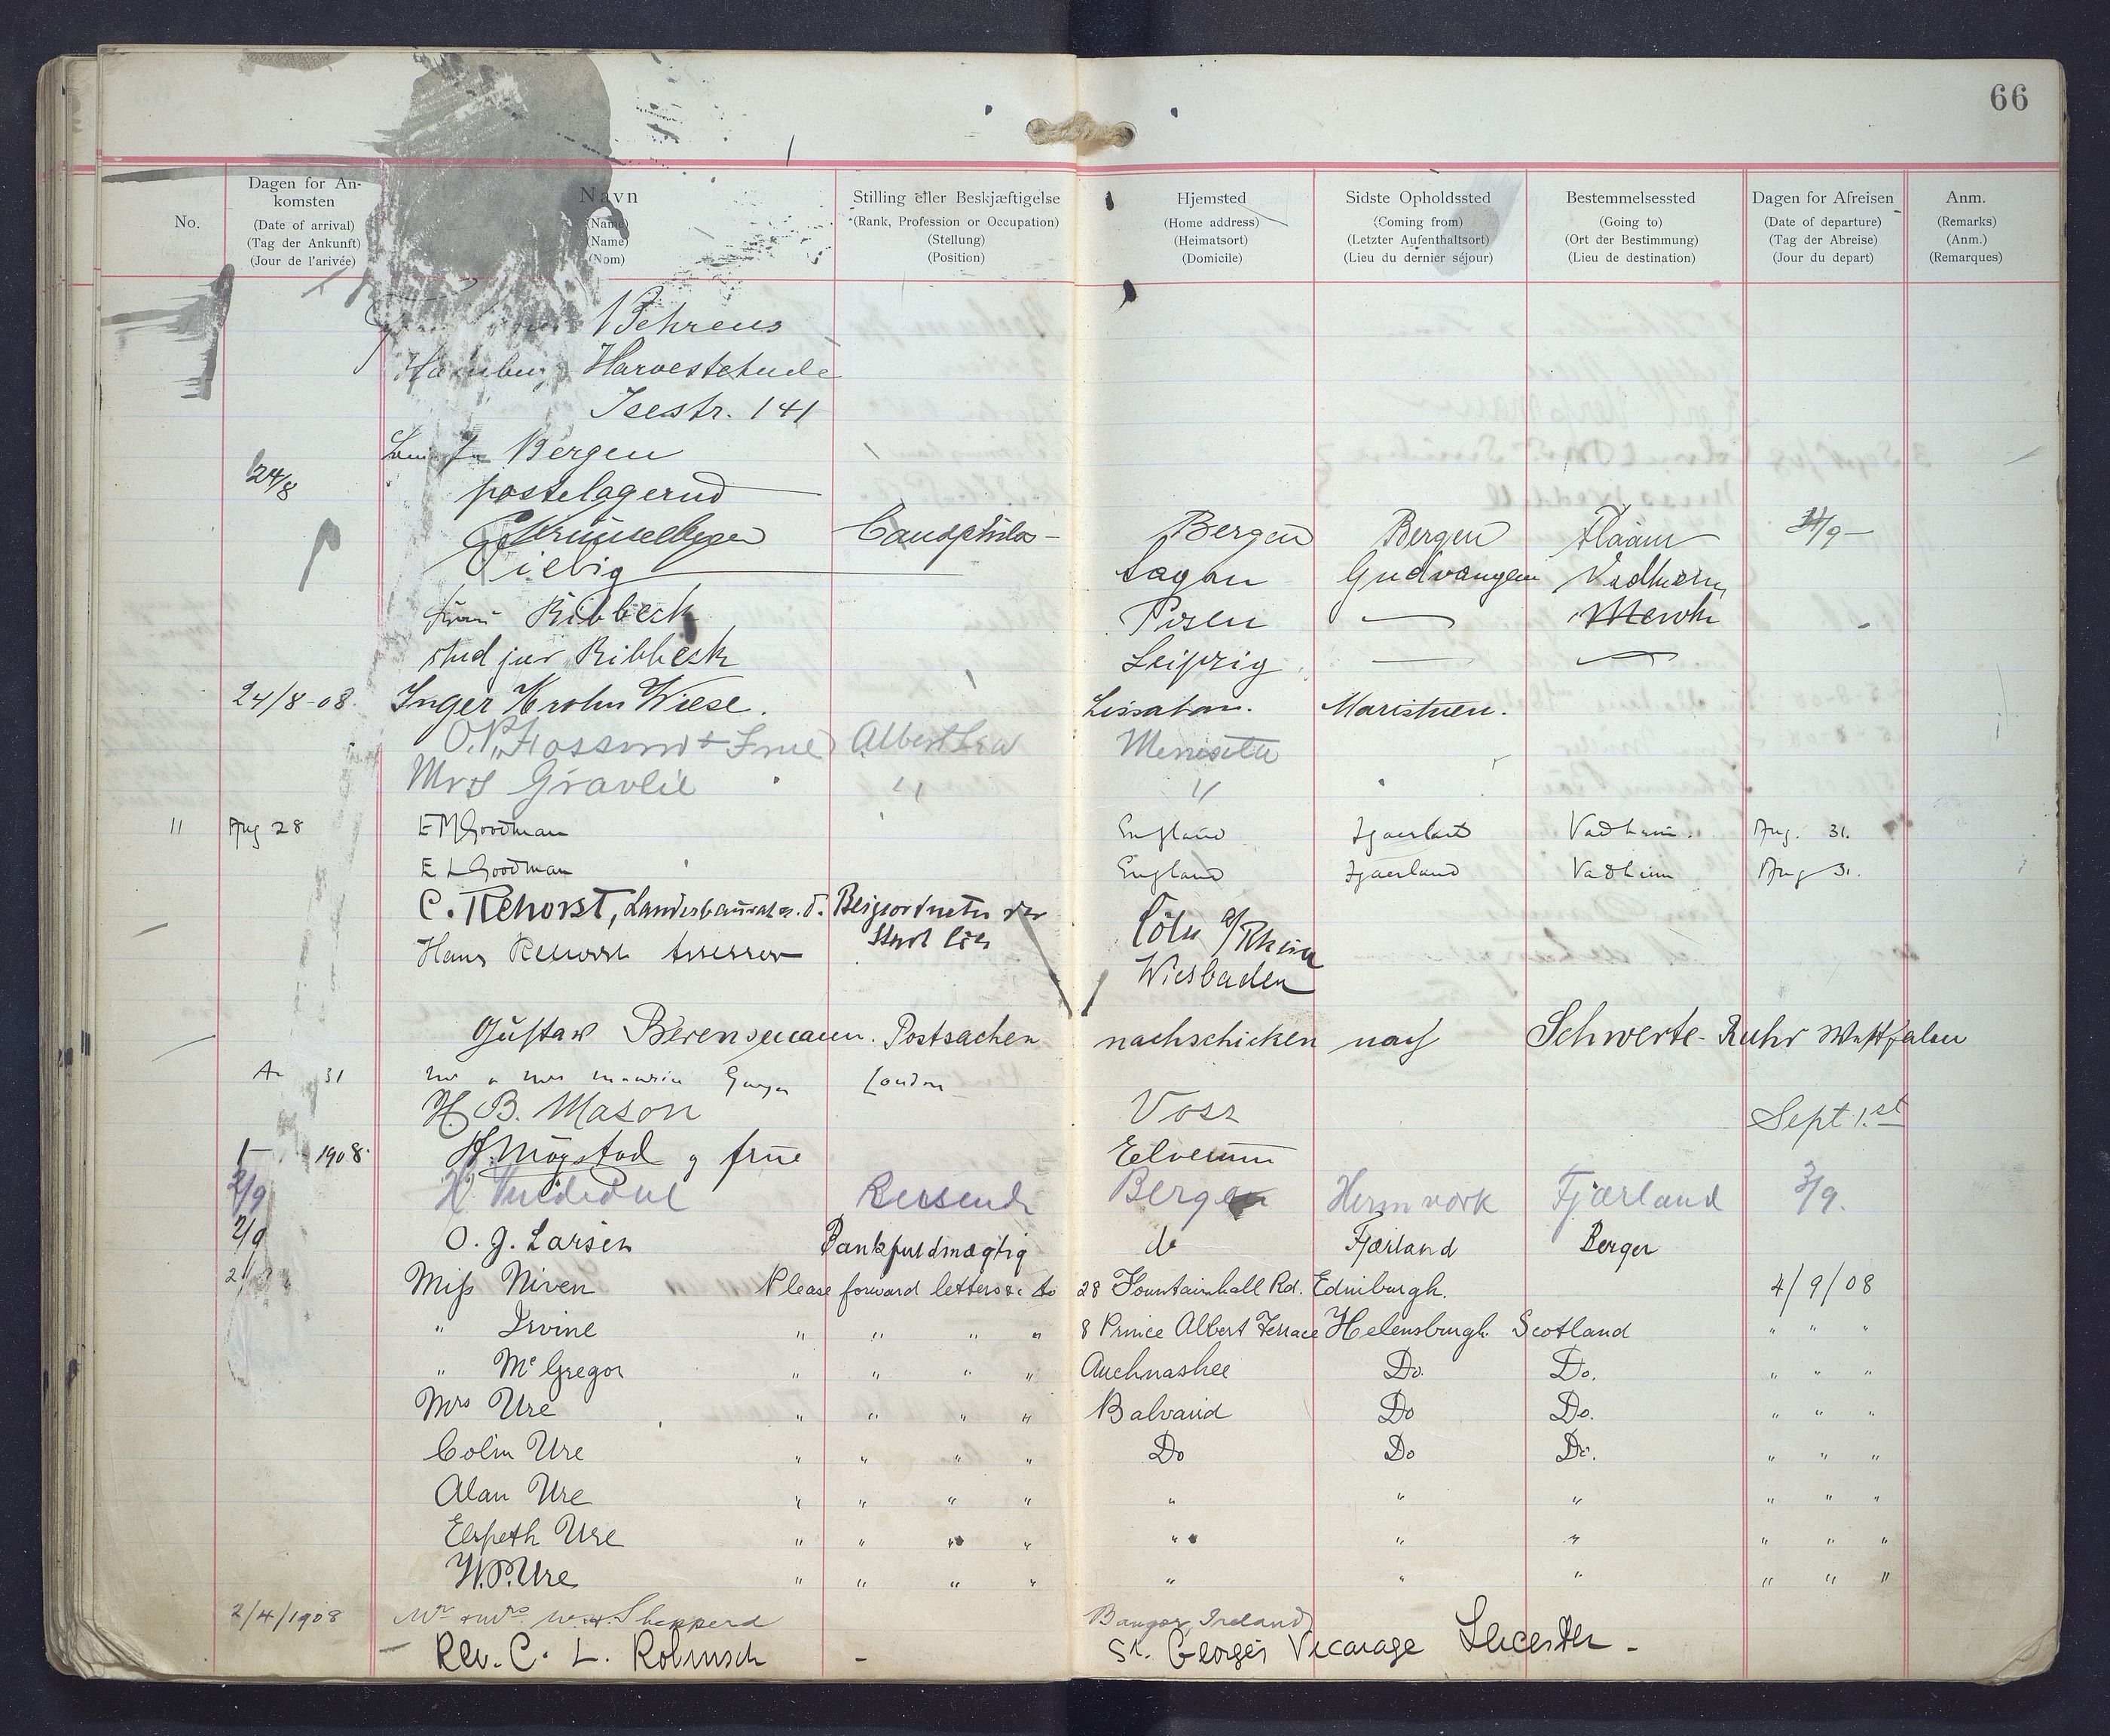 66
No.
Dagen for An-
komsten
(Date of arrival)
(Tag der Ankunft)
(Jour de l'arivée)
Navn
(Name)
(Name)
(Nom)
Stilling eller Beskjæftigelse
(Rank, Profession or Occupation)
(Stellung)
(Position)
Hjemsted
(Home address)
(Heimatsort)
(Domicile)
Sidste Opholdssted
(Coming from)
(Letzter Aufenthaltsort)
(Lieu du dernier séjour)
Bestemmelsessted
(Going to)
(Ort der Bestimmung)
(Lieu de destination)
Dagen for Afreisen
(Date of departure)
(Tag der Abreise)
(Jour du depart)
Anm.
(Remarks)
(Anm.)
(Remarques)
Behrens
Hamburg Harvestehude
Isestr. 141
Bergen
24/8 postelagernd
Bergen Bergen Flaam
Liebig Sagan Gudvangen Vadheim
Frau Ribbeck Posen — Merok
stud jur Ribbeck Leipzig — —
24/8-08. Inger Krohn Wiese. Maristuen.
Albert Lea
Mrs Gravlie " "
11 Aug 28 E M Goodman England Vadheim. Aug. 31.
E L Goodman England Fjaerland Vadheim Aug 31.
C. Rehorst, Landesbaurat a. D. Beigeordneter der Cöln a/Rhein
Stadt Cöln
Hans Rehorst Assessor Wiesbaden
Gustav Berensmann. Postsachen nachschicken nach Schwerte-Ruhr Westfalen
31 London
H. B. Mason Voss Sept 1.st
1 - 1908. H. Mogstad og frue Elverum
2/9 Reisende Bergen Fjærland 3/9.
2/9 O. J. Larsen Bankfuldmægtig do Fjærland Bergen
Miss Niven Please forward letters &c to 28 Fountainhall Rd. Edinburgh. 4/9/08
" Irvine " " " " 8 Prince Albert Terrace Helensburgh Scotland " " "
" McGregor " " " " Auchnashee Do. Do. " " "
Mrs Ure " " " " Balvaird Do Do. " " "
Colin Ure " " " " Do Do Do. " " "
Alan Ure " " " " " " " " " "
Elspeth Ure " " " " " " " " " "
W.P. Ure " " " " " " " " " "
2/4/1908 Mr & Mrs. W. H. Shepperd Bangor Ireland
Rev. C. L. Robinson - St. George's Vicarage Leicester -